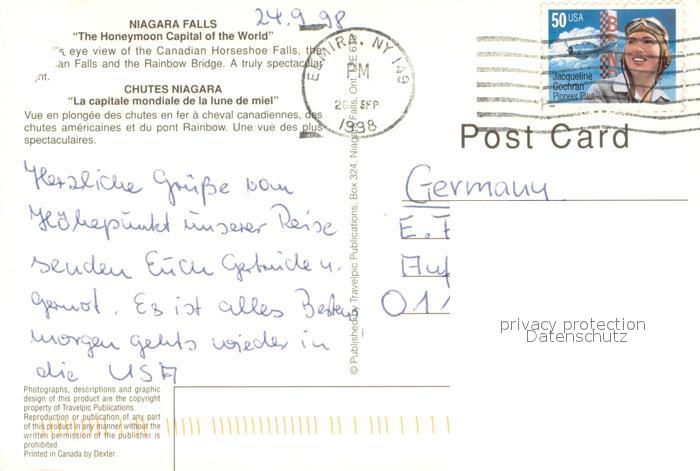 NIAGARA FALLS
24.9.98
"The Honeymoon Capital of the World"
's eye view of the Canadian Horseshoe Falls, the
an Falls and the Rainbow Bridge. A truly spectacular
nt.
CHUTES NIAGARA
"La capitale mondiale de la lune de miel"
Vue en plongée des chutes en fer à cheval canadiennes, des
chutes américaines et du pont Rainbow. Une vue des plus
spectaculaires.
ELMIRA, NY 149
PM
SEP
1998
50 USA
Jacqueline
Cochran
Pioneer Pilot
Post Card
Herzliche Grüße vom
Höhepunkt unserer Reise
senden Euch Gertrude u.
Gernot. Es ist alles Bestens
morgen gehts wieder in
die USA
© Published by Travelpic Publications, Box 324, Niagara Falls, Ont.
Germany
E.
Auf
011
privacy protection
Datenschutz
Photographs, descriptions and graphic
design of this product are the copyright
property of Travelpic Publications.
Reproduction or publication of any part
of this product in any manner without the
written permission of the publisher is
prohibited.
Printed in Canada by Dexter.